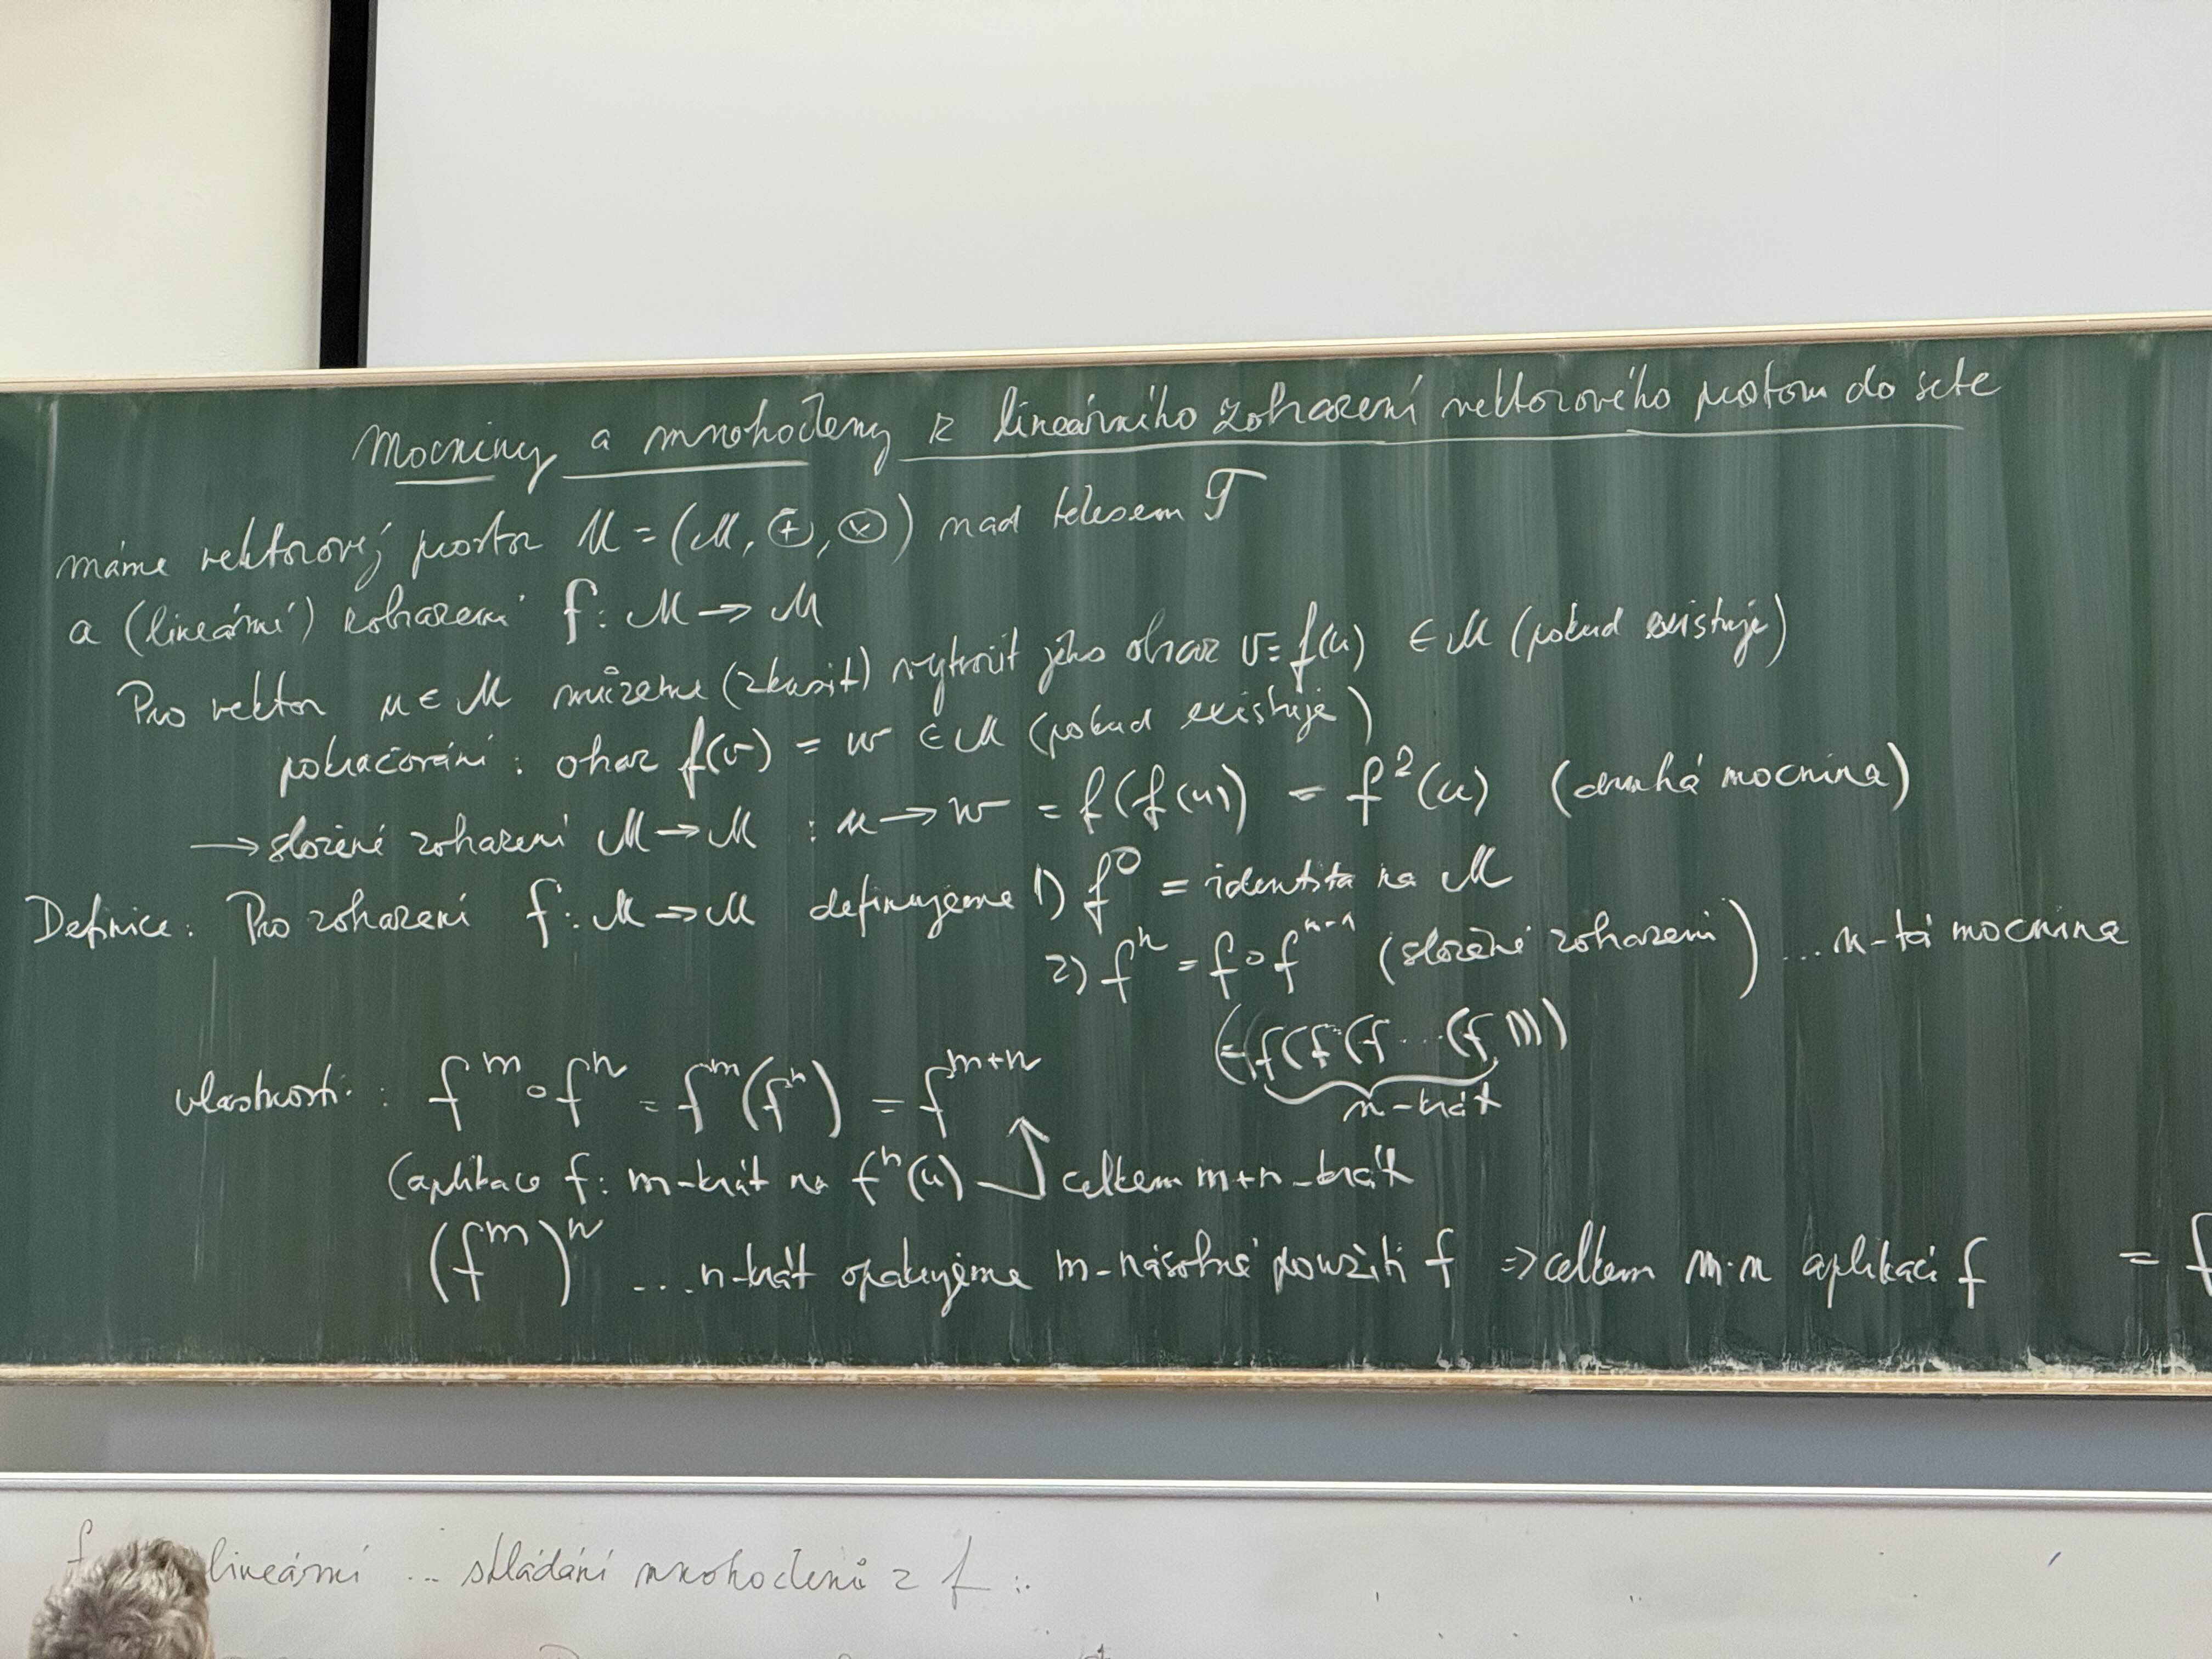 Mocniny a mnohočleny z lineárního zobrazení vektorového prostoru do sebe
máme vektorový prostor U = (U, ⊕, ⊗) nad tělesem T
a (lineární) zobrazení f: U → U
Pro vektor u ∈ U můžeme (zkusit) vytvořit jeho obraz v = f(u) ∈ U (pokud existuje)
pokračování: obraz f(v) = w ∈ U (pokud existuje)
→ složené zobrazení U → U : u → w = f(f(u)) = f²(u) (druhá mocnina)
Definice: Pro zobrazení f: U → U definujeme 1) f⁰ = identita na U
2) fⁿ = f∘fⁿ⁻¹ (složené zobrazení) ... n-tá mocnina
(= f(f(f...(f)))
n-krát
vlastnosti: fᵐ∘fⁿ = fᵐ(fⁿ) = fᵐ⁺ⁿ
(aplikace f: m-krát na fⁿ(u) ↑ celkem m+n-krát
(fᵐ)ⁿ ... n-krát opakujeme m-násobné použití f ⇒ celkem m·n aplikací f = f
lineární ... skládání mnohočlenů z f :